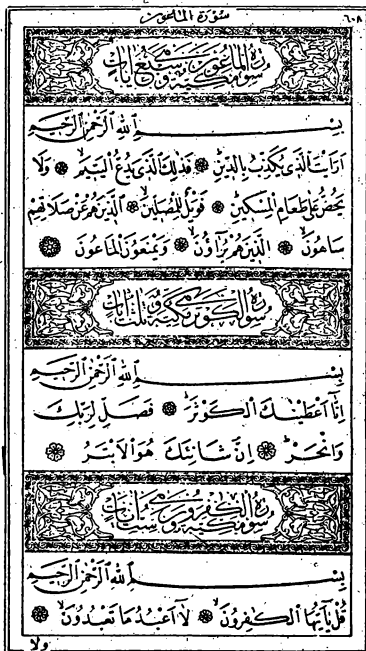 سُورَةُ الْمَاعُونَ ٦٠٨
سُورَةُ الْمَاعُونَ مَكِّيَّةٌ وَهِيَ سَبْعُ اٰيَاتٍ
بِسْمِ اللّٰهِ الرَّحْمٰنِ الرَّحِيمِ
اَرَاَيْتَ الَّذٖي يُكَذِّبُ بِالدّٖينِ فَذٰلِكَ الَّذٖي يَدُعُّ الْيَتٖيمَ وَلَا
يَحُضُّ عَلٰى طَعَامِ الْمِسْكٖينِ فَوَيْلٌ لِلْمُصَلّٖينَ اَلَّذٖينَ هُمْ عَنْ صَلَاتِهِمْ
سَاهُونَ اَلَّذٖينَ هُمْ يُرَآؤُنَ وَيَمْنَعُونَ الْمَاعُونَ
سُورَةُ الْكَوْثَرِ مَكِّيَّةٌ وَهِيَ ثَلٰثُ اٰيَاتٍ
بِسْمِ اللّٰهِ الرَّحْمٰنِ الرَّحِيمِ
اِنَّٓا اَعْطَيْنَاكَ الْكَوْثَرَ فَصَلِّ لِرَبِّكَ
وَانْحَرْ اِنَّ شَانِئَكَ هُوَ الْاَبْتَرُ
سُورَةُ الْكٰفِرُونَ مَكِّيَّةٌ وَهِيَ سِتُّ اٰيَاتٍ
بِسْمِ اللّٰهِ الرَّحْمٰنِ الرَّحِيمِ
قُلْ يَٓا اَيُّهَا الْكٰفِرُونَ لَٓا اَعْبُدُ مَا تَعْبُدُونَ
وَلَا